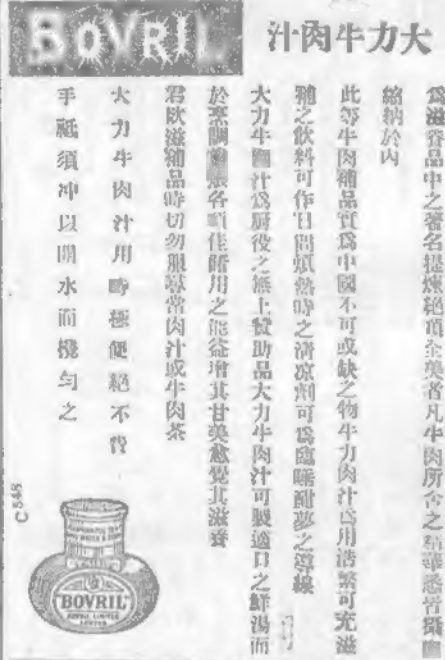 BOVRIL
大力牛肉汁
為滋養品中之著名提煉絕頂全美者凡牛肉所含之精華悉皆攝
縮納於內
此等牛肉補品實為中國不可或缺之物牛力肉汁為用浩繁可充滋
補之飲料可作日間煩熱時之清凉劑可為臨睡酣夢之導線
大力牛肉汁為厨役之無上贊助品大力牛肉汁可製適口之鮮湯而
於烹調各項佳餚用之能益增其甘美愈覺其滋養
君欲滋補品時切勿服尋常肉汁或牛肉茶
大力牛肉汁用時極便絕不費
手祇須冲以開水而攪勻之
C 548
BOVRIL
BOVRIL LIMITED
LONDON